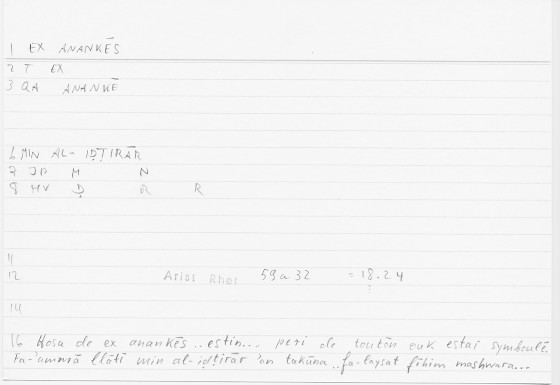 1 EX ANANKĒS
2 T EX
3 QA ANANKĒ
6 MIN AL-IḌṬIRĀR
7 JR M N
8 MV Ḍ R R
11
12 Arist Rhet 59a32 = 18.24
14
16 Hosa de ex anankēs..estin... peri de toutōn ouk estai symboulē.
Fa-'ammā llātī min al-iḍṭirār 'an takūna..fa-laysat fīhim mashwara...